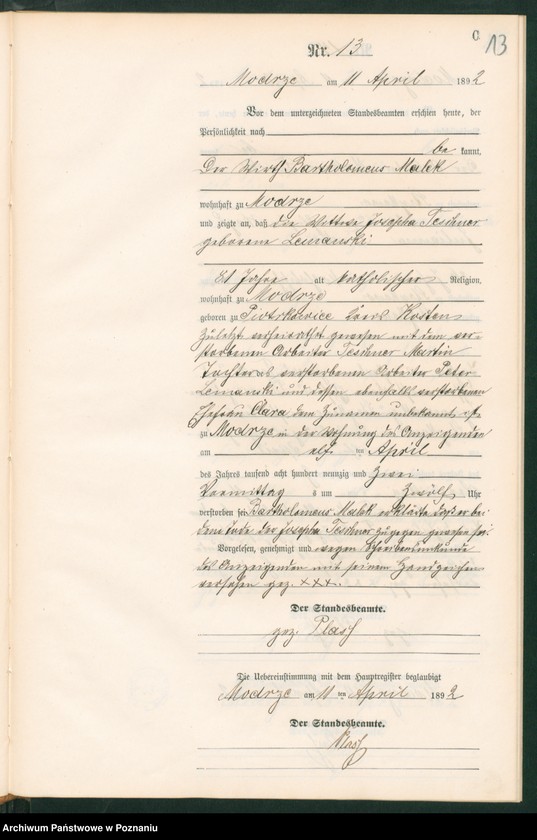 C.
13
Nr. 13
Modrze am 11 April 1892
Vor dem unterzeichneten Standesbeamten erschien heute, der
Persönlichkeit nach
be kannt,
Der Wirth Bartholomeus Malek
wohnhaft zu Modrze
und zeigte an, daß die Wittwe Josepha Teschner
geborene Lemanski
81 Jahre alt katholischer Religion,
wohnhaft zu Modrze
geboren zu Piotrkowice Kreis Kosten
zuletzt verheirathet gewesen mit dem ver-
storbenen Arbeiter Teschner Martin
Tochter des verstorbenen Arbeiter Peter
Lemanski und dessen ebenfalls verstorbenen
Ehefrau Clara dem Zunamen unbekannt
zu Modrze in der Wohnung des Anzeigenden
am elf ten April
des Jahres tausend acht hundert neunzig und zwei
Vormittag s um zwölf Uhr
verstorben sei. Bartholomeus Malek erklärte daß er bei
dem Tode der Josepha Teschner zugegen gewesen sei.
Vorgelesen, genehmigt und wegen Schreibensunkunde
des Anzeigenden mit seinem Handzeichen
versehen gez. XXX.
Der Standesbeamte.
gez. Plasch
Die Uebereinstimmung mit dem Hauptregister beglaubigt
Modrze am 11 ten April 1892
Der Standesbeamte.
Plasch
Archiwum Państwowe w Poznaniu